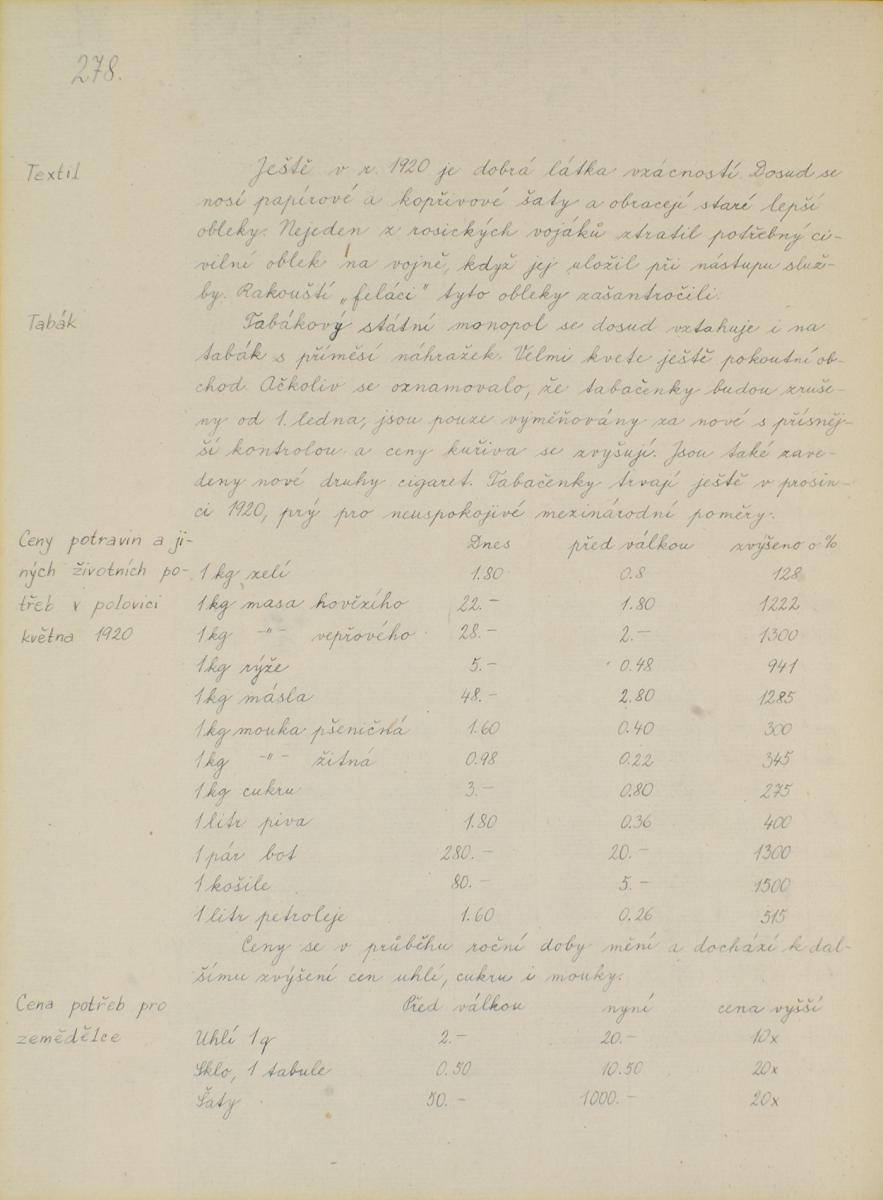 278.
Textil
Ještě v r. 1920 je dobrá látka vzácností. Dosud se
nosí papírové a kopřivové šaty a obracejí staré lepší
obleky. Nejeden z rosických vojáků ztratil potřebný ci-
vilní oblek na vojně, když jej uložil při nástupu služ-
by. Rakouští „feláci" tyto obleky zašantročili.
Tabák
Tabákový státní monopol se dosud vztahuje i na
tabák s příměsí náhražek. Velmi kvete ještě pokoutní ob-
chod. Ačkoliv se oznamovalo, že tabačenky budou zruše-
ny od 1. ledna, jsou pouze vyměňovány za nové s přísněj-
ší kontrolou a ceny kuřiva se zvyšují. Jsou také zave-
deny nové druhy cigaret. Tabačenky trvají ještě v prosin-
ci 1920, prý pro neuspokojivé mezinárodní poměry.
Ceny potravin a ji-
ných životních po-
třeb v polovici
května 1920
Dnes před válkou zvýšeno o %
1 kg zelí 1.80 0.8 128
1 kg masa hovězího 22.- 1.80 1222
1 kg -"- vepřového 28.- 2.- 1300
1 kg rýže 5.- 0.48 941
1 kg másla 48.- 2.80 1285
1 kg mouka pšeničná 1.60 0.40 300
1 kg -"- žitná 0.98 0.22 345
1 kg cukru 3.- 0.80 275
1 litr piva 1.80 0.36 400
1 pár bot 280.- 20.- 1300
1 košile 80.- 5.- 1500
1 litr petroleje 1.60 0.26 515
Ceny se v průběhu roční doby mění a dochází k dal-
šímu zvýšení cen uhlí, cukru i mouky.
Cena potřeb pro
zemědělce
Před válkou nyní cena vyšší
Uhlí 1 q 2.- 20.- 10x
Sklo, 1 tabule 0.50 10.50 20x
Šaty 50.- 1000.- 20x